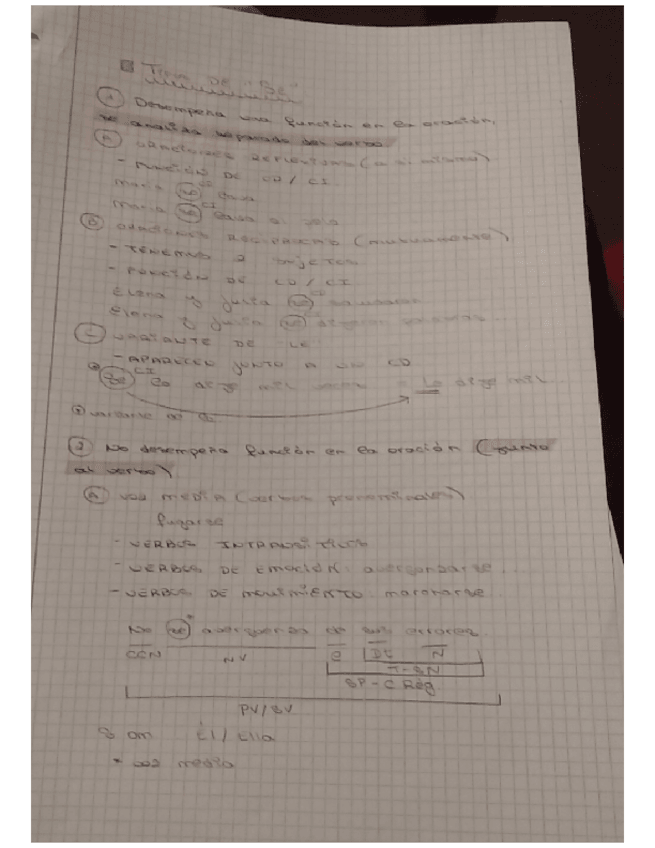 Tipos de "Se"
① Desempeña una función en la oración,
se analiza separado del verbo.
Ⓐ ORACIONES REFLEXIVAS (a sí mismo)
- FUNCIÓN DE CD/CI
María se lava
CD
María se lava el pelo
CI
Ⓑ ORACIONES RECÍPROCAS (mutuamente)
- TENEMOS 2 SUJETOS
- FUNCIÓN DE CD/CI
Elena y Julia se saludaron
Elena y Julia se
Ⓒ VARIANTE DE LE
- APARECEN JUNTO A UN CD
CI
Se lo digo mil veces Lo digo mil
variante de
② No desempeña función en la oración (junto
al verbo)
Ⓐ VOZ MEDIA (verbos pronominales)
fugarse
- VERBOS INTRANSITIVOS
- VERBOS DE EMOCIÓN: avergonzarse...
- VERBOS DE MOVIMIENTO: marcharse...
No se* avergüenza de sus errores
CCN NV E Dt N
T-SN
SP-C Rég
PV/SV
S om Él/Ella
* voz media